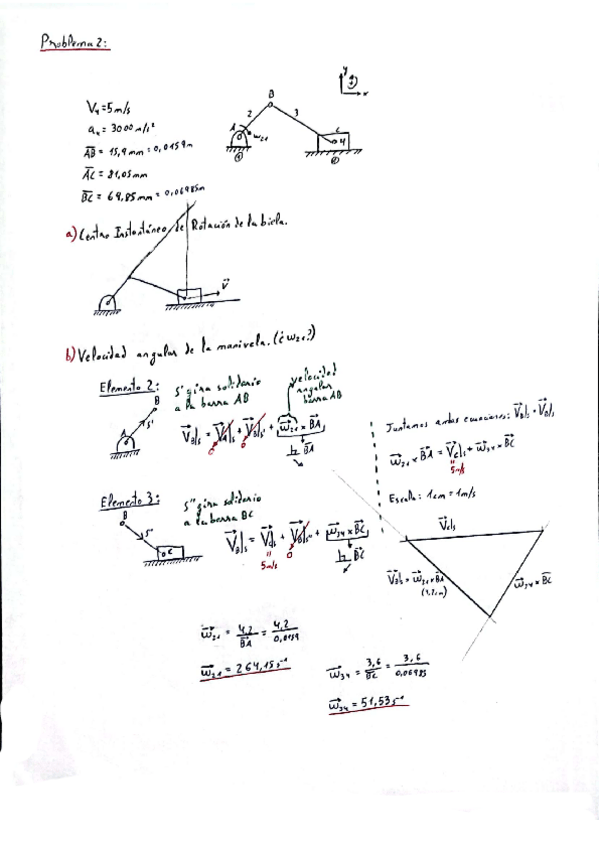 Problema 2:
V₄ = 5 m/s
a₄ = 3000 m/s²
AB = 15,9 mm = 0,0159 m
AC = 81,05 mm
BC = 69,85 mm = 0,06985 m
A B C 2 3 4 ω₂₁ 1 1
y x
a) Centro Instantáneo de Rotación de la biela.
V
b) Velocidad angular de la manivela. (¿ω₂₁?)
Elemento 2:
S' gira solidario
a la barra AB
velocidad
angular
barra AB
A B S'
V_B|s = V_A|s + V_B|s' + ω₂₁ × BA
0 0
h BA
Elemento 3:
S'' gira solidario
a la barra BC
B S'' C
V_B|s = V_C|s + V_B|s'' + ω₃₄ × BC
5 m/s 0
h BC
Juntamos ambas ecuaciones: V_B|s = V_B|s
ω₂₁ × BA = V_C|s + ω₃₄ × BC
5 m/s
Escala: 1 cm = 1 m/s
V_C|s
V_B|s = ω₂₁ × BA
(4,2 cm)
ω₃₄ × BC
ω₂₁ = 4,2 / BA = 4,2 / 0,0159
ω₂₁ = 264,15 s⁻¹
ω₃₄ = 3,6 / BC = 3,6 / 0,06985
ω₃₄ = 51,53 s⁻¹